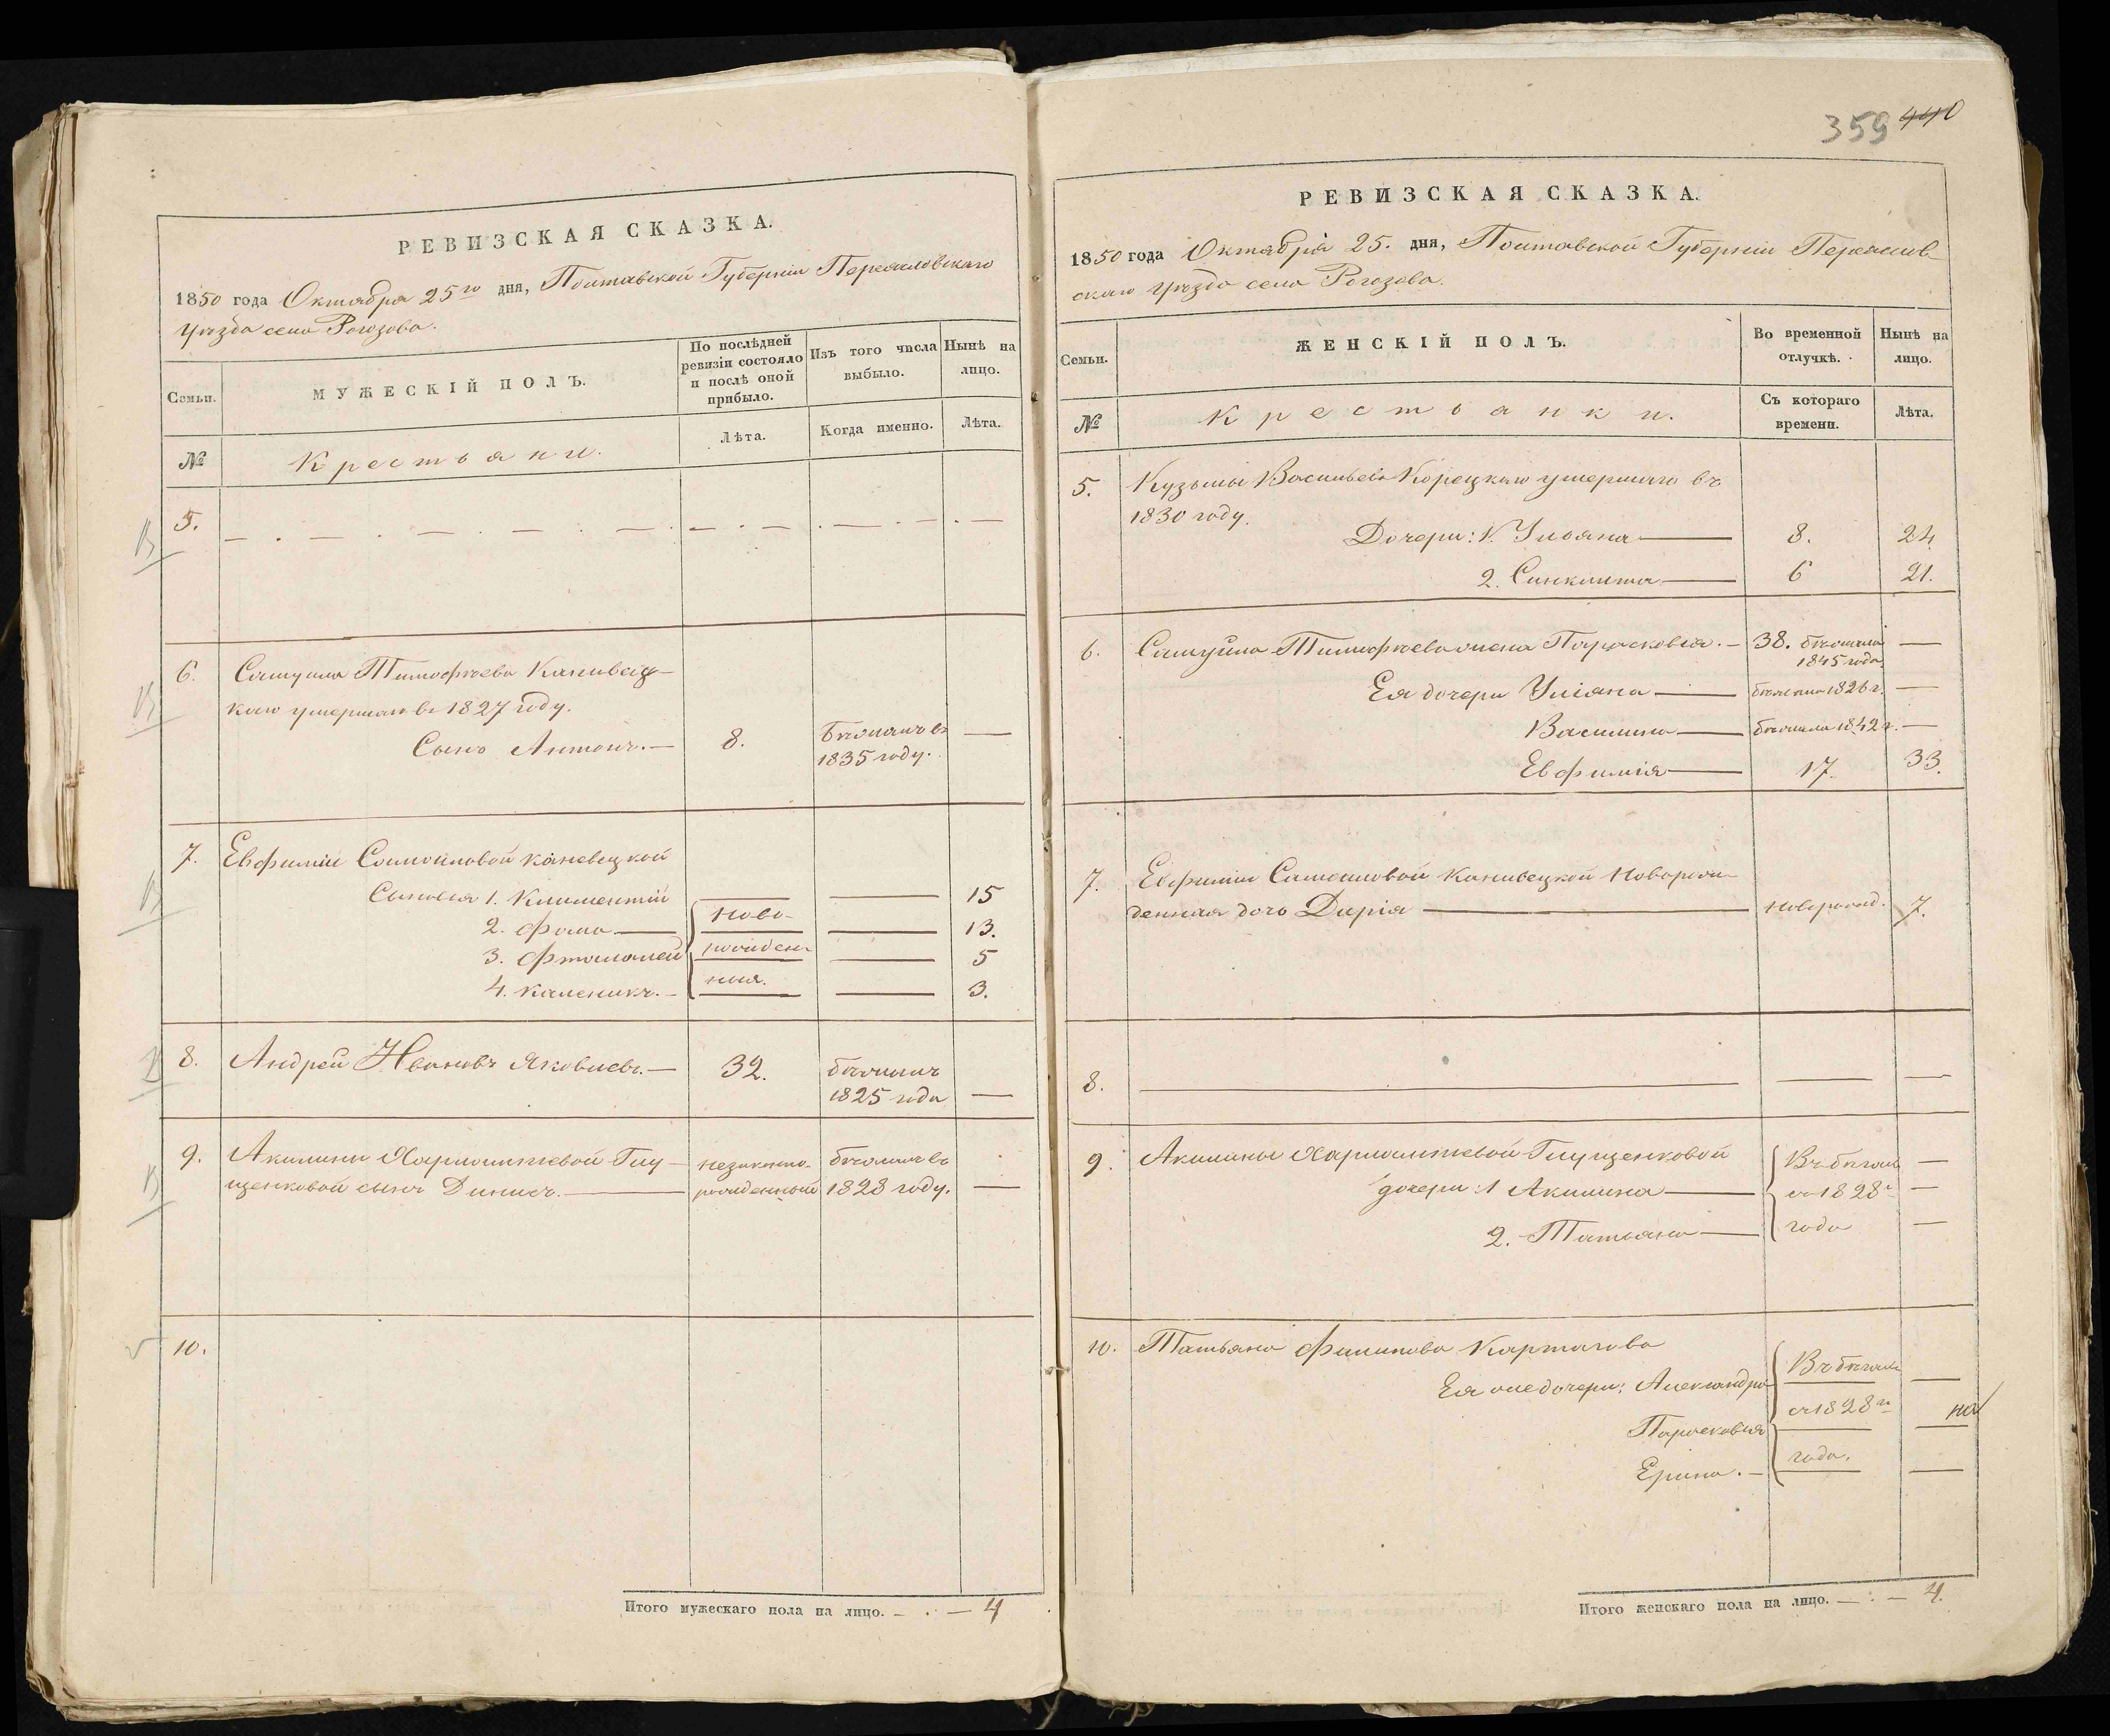 РЕВИЗСКАЯ СКАЗКА.
1850 года Октября 25го дня, Полтавской Губерніи Переяславскаго
уѣзда села Рогозова.
Семьи.
МУЖЕСКІЙ ПОЛЪ.
По послѣдней
ревизіи состояло
и послѣ оной
прибыло.
Изъ того числа
выбыло.
Нынѣ на
лицо.
№
Крестьяне.
Лѣта.
Когда именно.
Лѣта.
5.
6. Самуила Тимофѣева Канивец-
каго умершаго въ 1827 году.
Сынъ Антонъ. — 8. бѣжалъ въ —
1835 году.
7. Евфиміи Самойловой Каневецкой
Сыновья 1. Климентій — 15
2. Фома — ново- — 13.
3. рожден- — 5
4. Каленикъ. — ныя. — 3.
8. Андрей Ивановъ Яковлевъ. — 32. бѣжалъ
1825 года —
9. Акилины незаконно- бѣжалъ въ
сынъ Динисъ. — рожденный 1828 году. —
10.
Итого мужескаго пола на лицо. — . — 4
359 440
РЕВИЗСКАЯ СКАЗКА.
1850 года Октября 25. дня, Полтавской Губерніи Переяслав-
скаго уѣзда села Рогозова.
Семьи.
ЖЕНСКІЙ ПОЛЪ.
Во временной
отлучкѣ.
Нынѣ на
лицо.
№
Крестьянки.
Съ котораго
времени.
Лѣта.
5. Кузьмы Васильева Корецкаго умершаго въ
1830 году.
Дочери: 1. Ульяна — 8. 24.
2. Синклита — 6 21.
6. Самуила Тимофѣева жена Парасковія. — 38. бѣжала —
1845 года
Ея дочери Уліяна — бѣжала 1826 г. —
Василина — бѣжала 1842 г. —
Евфимія — 17. 33.
7. Евфиміи Самойловой Канивецкой Новорож-
денная дочь Дарія — новорожд. 7.
8. — — —
9. Акилины Въ бѣгахъ —
дочери: 1 Акилина — съ 1828 —
2. Татьяна — года —
10. Татьяна Филипова
Ея же дочери: Александра Въ бѣгахъ —
Парасковія съ 1828го на
Ерина. — года. —
Итого женскаго пола на лицо. — : — 4.